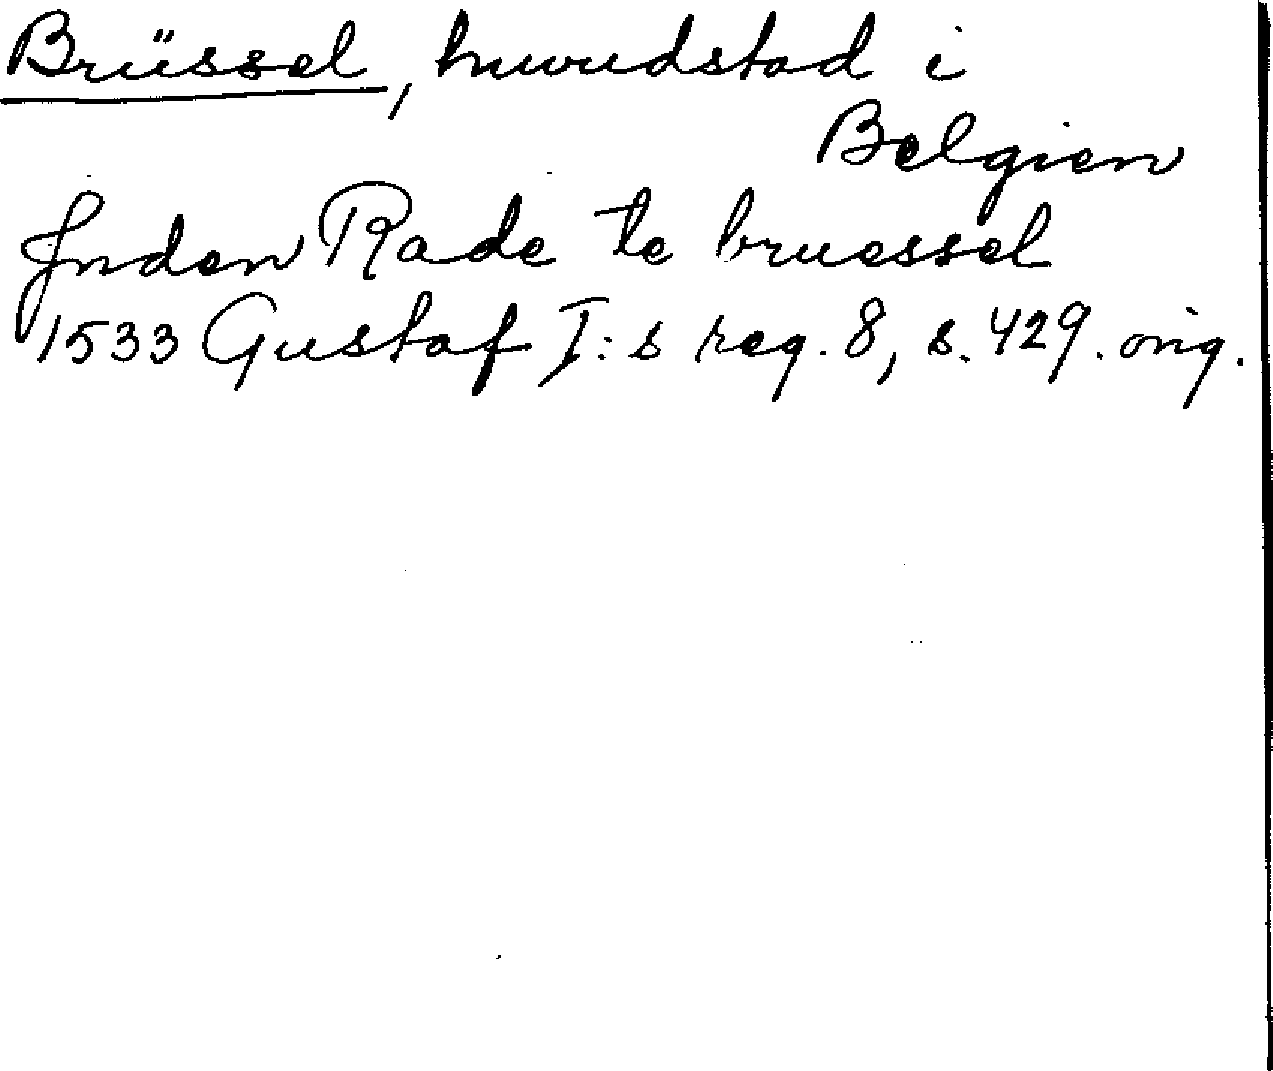 Brüssel, huvudstad i
Belgien
Jnden Rade te bruessel
1533 Gustaf I:s reg. 8, s. 429. orig.